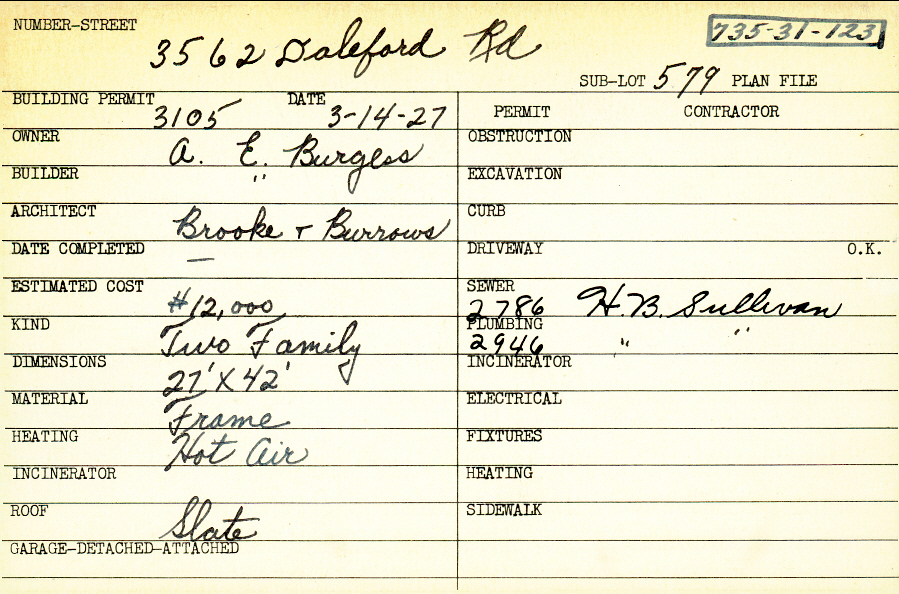 NUMBER-STREET
3562 Daleford Rd
735-31-123
SUB-LOT 579 PLAN FILE
BUILDING PERMIT 3105 DATE 3-14-27
PERMIT CONTRACTOR
OWNER A. E. Burgess
OBSTRUCTION
BUILDER "
EXCAVATION
ARCHITECT Brooke + Burrows
CURB
DATE COMPLETED —
DRIVEWAY O.K.
ESTIMATED COST #12,000
SEWER 2786 H.B. Sullivan
KIND Two Family
PLUMBING 2946 " "
DIMENSIONS 27' X 42'
INCINERATOR
MATERIAL Frame
ELECTRICAL
HEATING Hot Air
FIXTURES
INCINERATOR
HEATING
ROOF Slate
SIDEWALK
GARAGE-DETACHED-ATTACHED